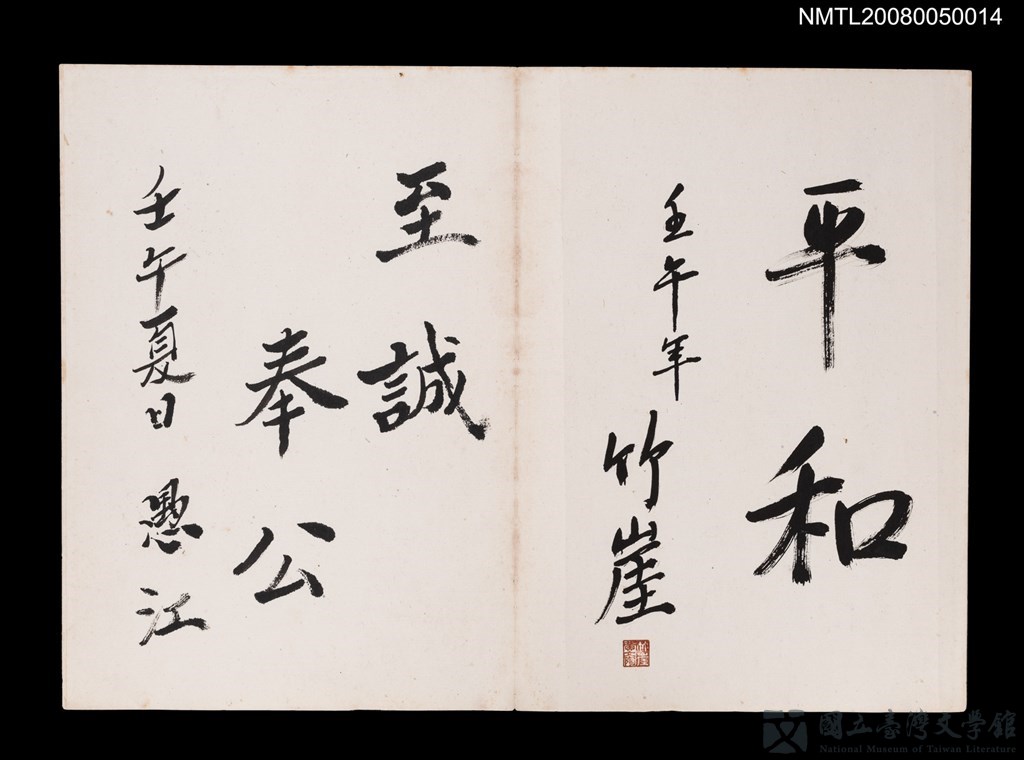 NMTL20080050014
平和
壬午年
竹崖
至誠
奉公
壬午夏日 愚江
國立臺灣文學館
National Museum of Taiwan Literature